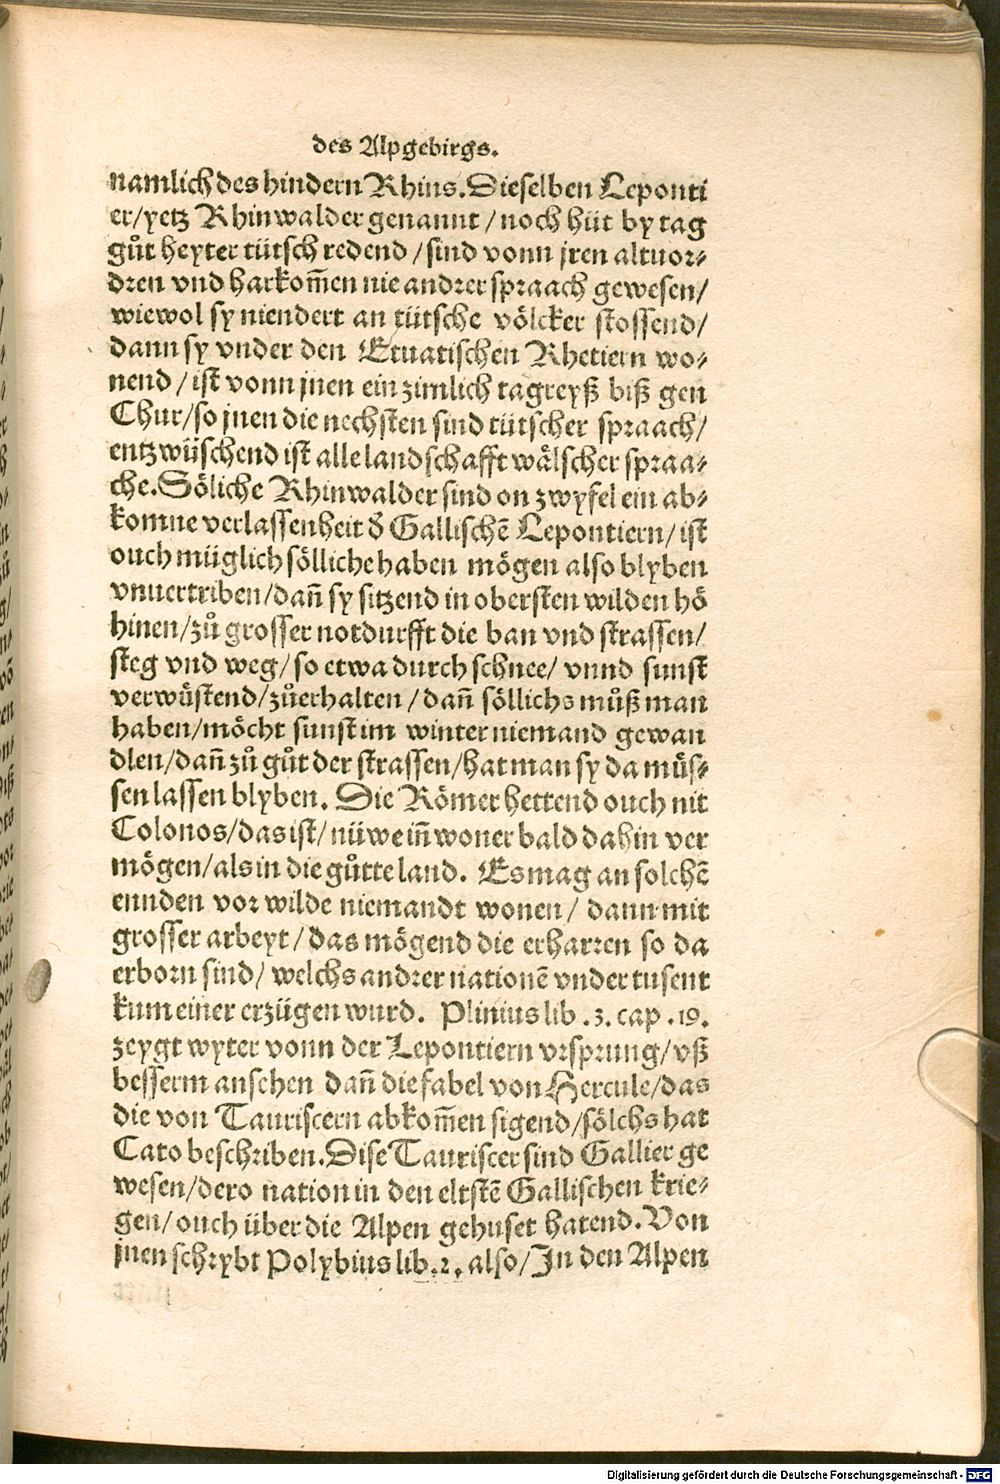 des Alpgebirgs.
namlich des hindern Rhins. Dieselben Leponti
er/yetz Rhinwalder genannt/noch hüt by tag
gůt heyter tütsch redend/sind vonn jren altuor⸗
dren vnd harkom̃en nie andrer spraach gewesen/
wiewol sy niendert an tütsche völcker stossend/
dann sy vnder den Etuatischen Rhetiern wo⸗
nend/ist vonn jnen ein zimlich tagreyß biß gen
Chur/so jnen die nechsten sind tütscher spraach/
entzwüschend ist alle landschafft wälscher spraa⸗
che. Söliche Rhinwalder sind on zwyfel ein ab⸗
komne verlassenheit d̕ Gallischẽ Lepontiern/ist
ouch müglich sölliche haben mögen also blyben
vnuertriben/dañ sy sitzend in obersten wilden hö
hinen/zů grosser notdurfft die ban vnd strassen/
steg vnd weg/so etwa durch schnee/vnnd sunst
verwüstend/zůerhalten/dañ söllichs můß man
haben/möcht sunst im winter niemand gewan
dlen/dañ zů gůt der strassen/hat man sy da müs⸗
sen lassen blyben. Die Römer hettend ouch nit
Colonos/das ist/nüwe iñwoner bald dahin ver
mögen/als in die gůtte land. Es mag an solchẽ
ennden vor wilde niemandt wonen/dann mit
grosser arbeyt/das mögend die erharren so da
erborn sind/welchs andrer nationẽ vnder tusent
kum einer erzügen wurd. Plinius lib .3. cap .19.
zeygt wyter vonn der Lepontiern vrsprung/vß
besserm ansehen dañ die fabel von Hercule/das
die von Tauriscern abkom̃en sigend/sölchs hat
Cato beschriben. Dise Tauriscer sind Gallier ge
wesen/dero nation in den eltstẽ Gallischen krie⸗
gen/ouch über die Alpen gehuset hatend. Von
jnen schrybt Polybius lib.2. also/In den Alpen
Digitalisierung gefördert durch die Deutsche Forschungsgemeinschaft - DFG